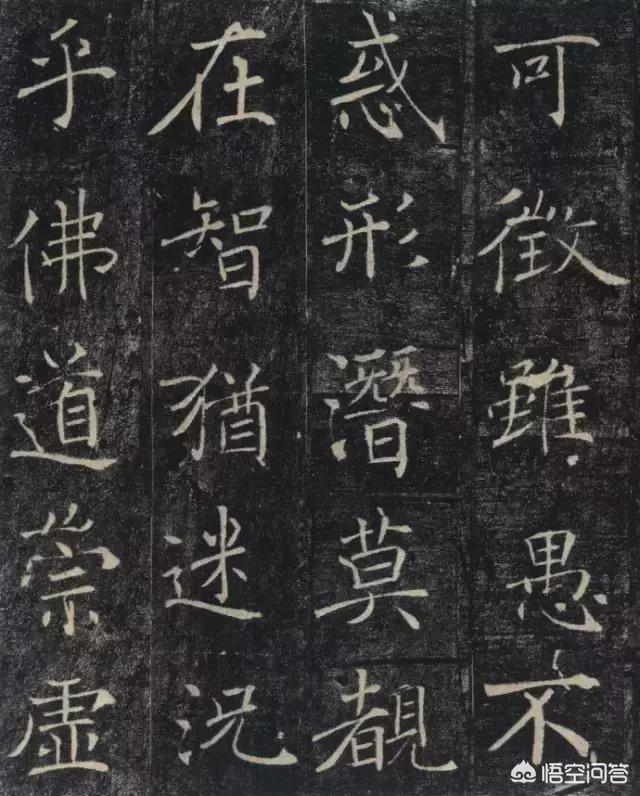 可徵雖愚不
惑形潛莫覩
在智猶迷況
乎佛道崇虛
悟空问答